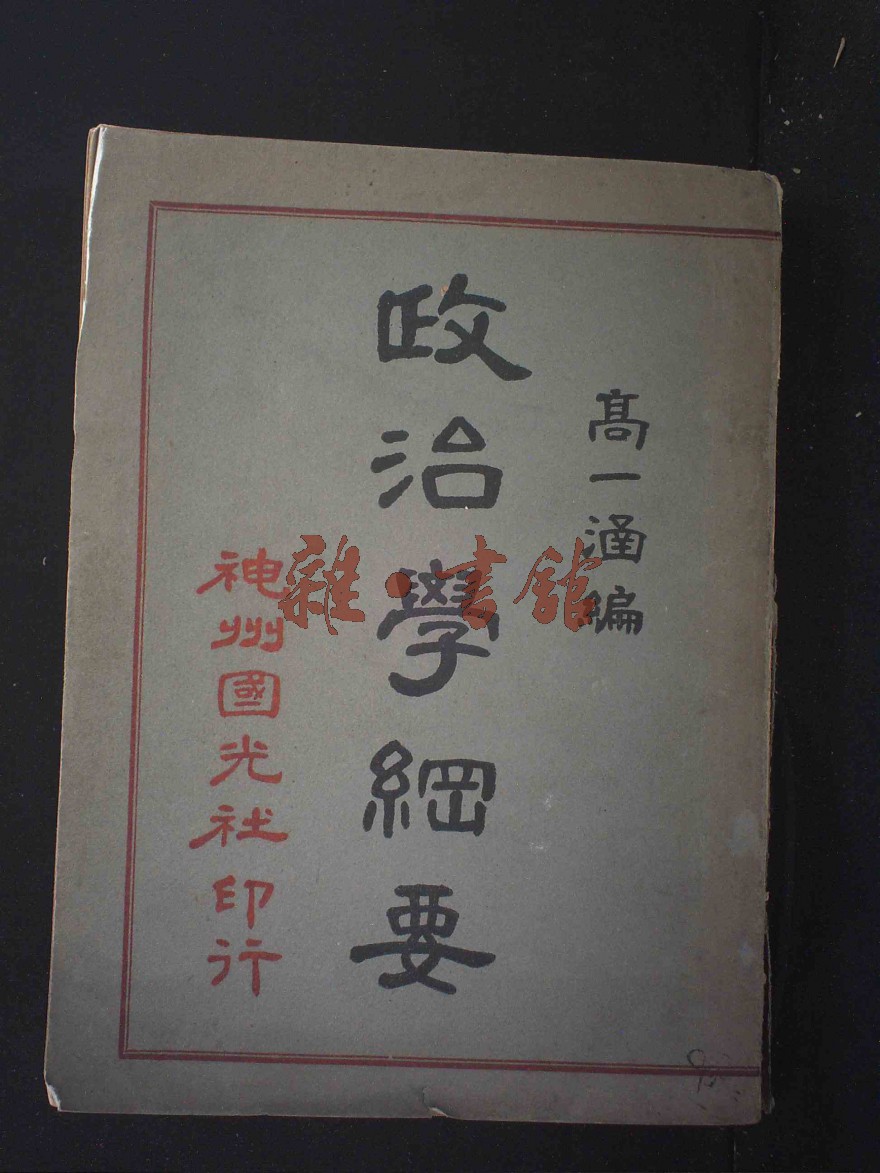 高一涵編
政治學綱要
神州國光社印行
雜·書館